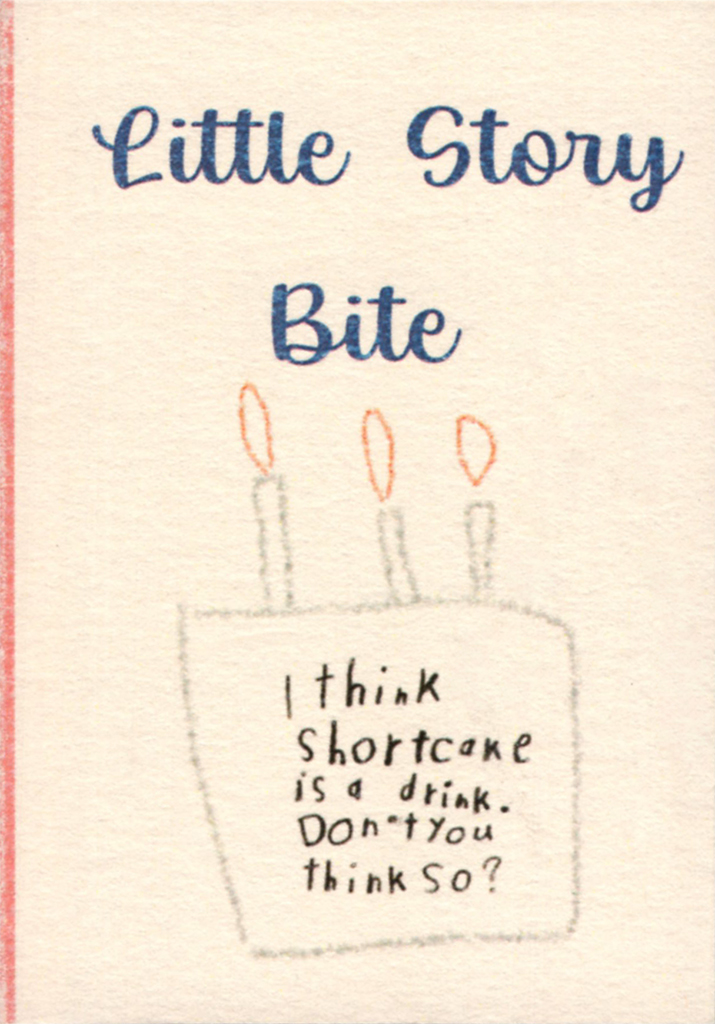 Little Story
Bite
I think
shortcake
is a drink.
Don't you
think so?